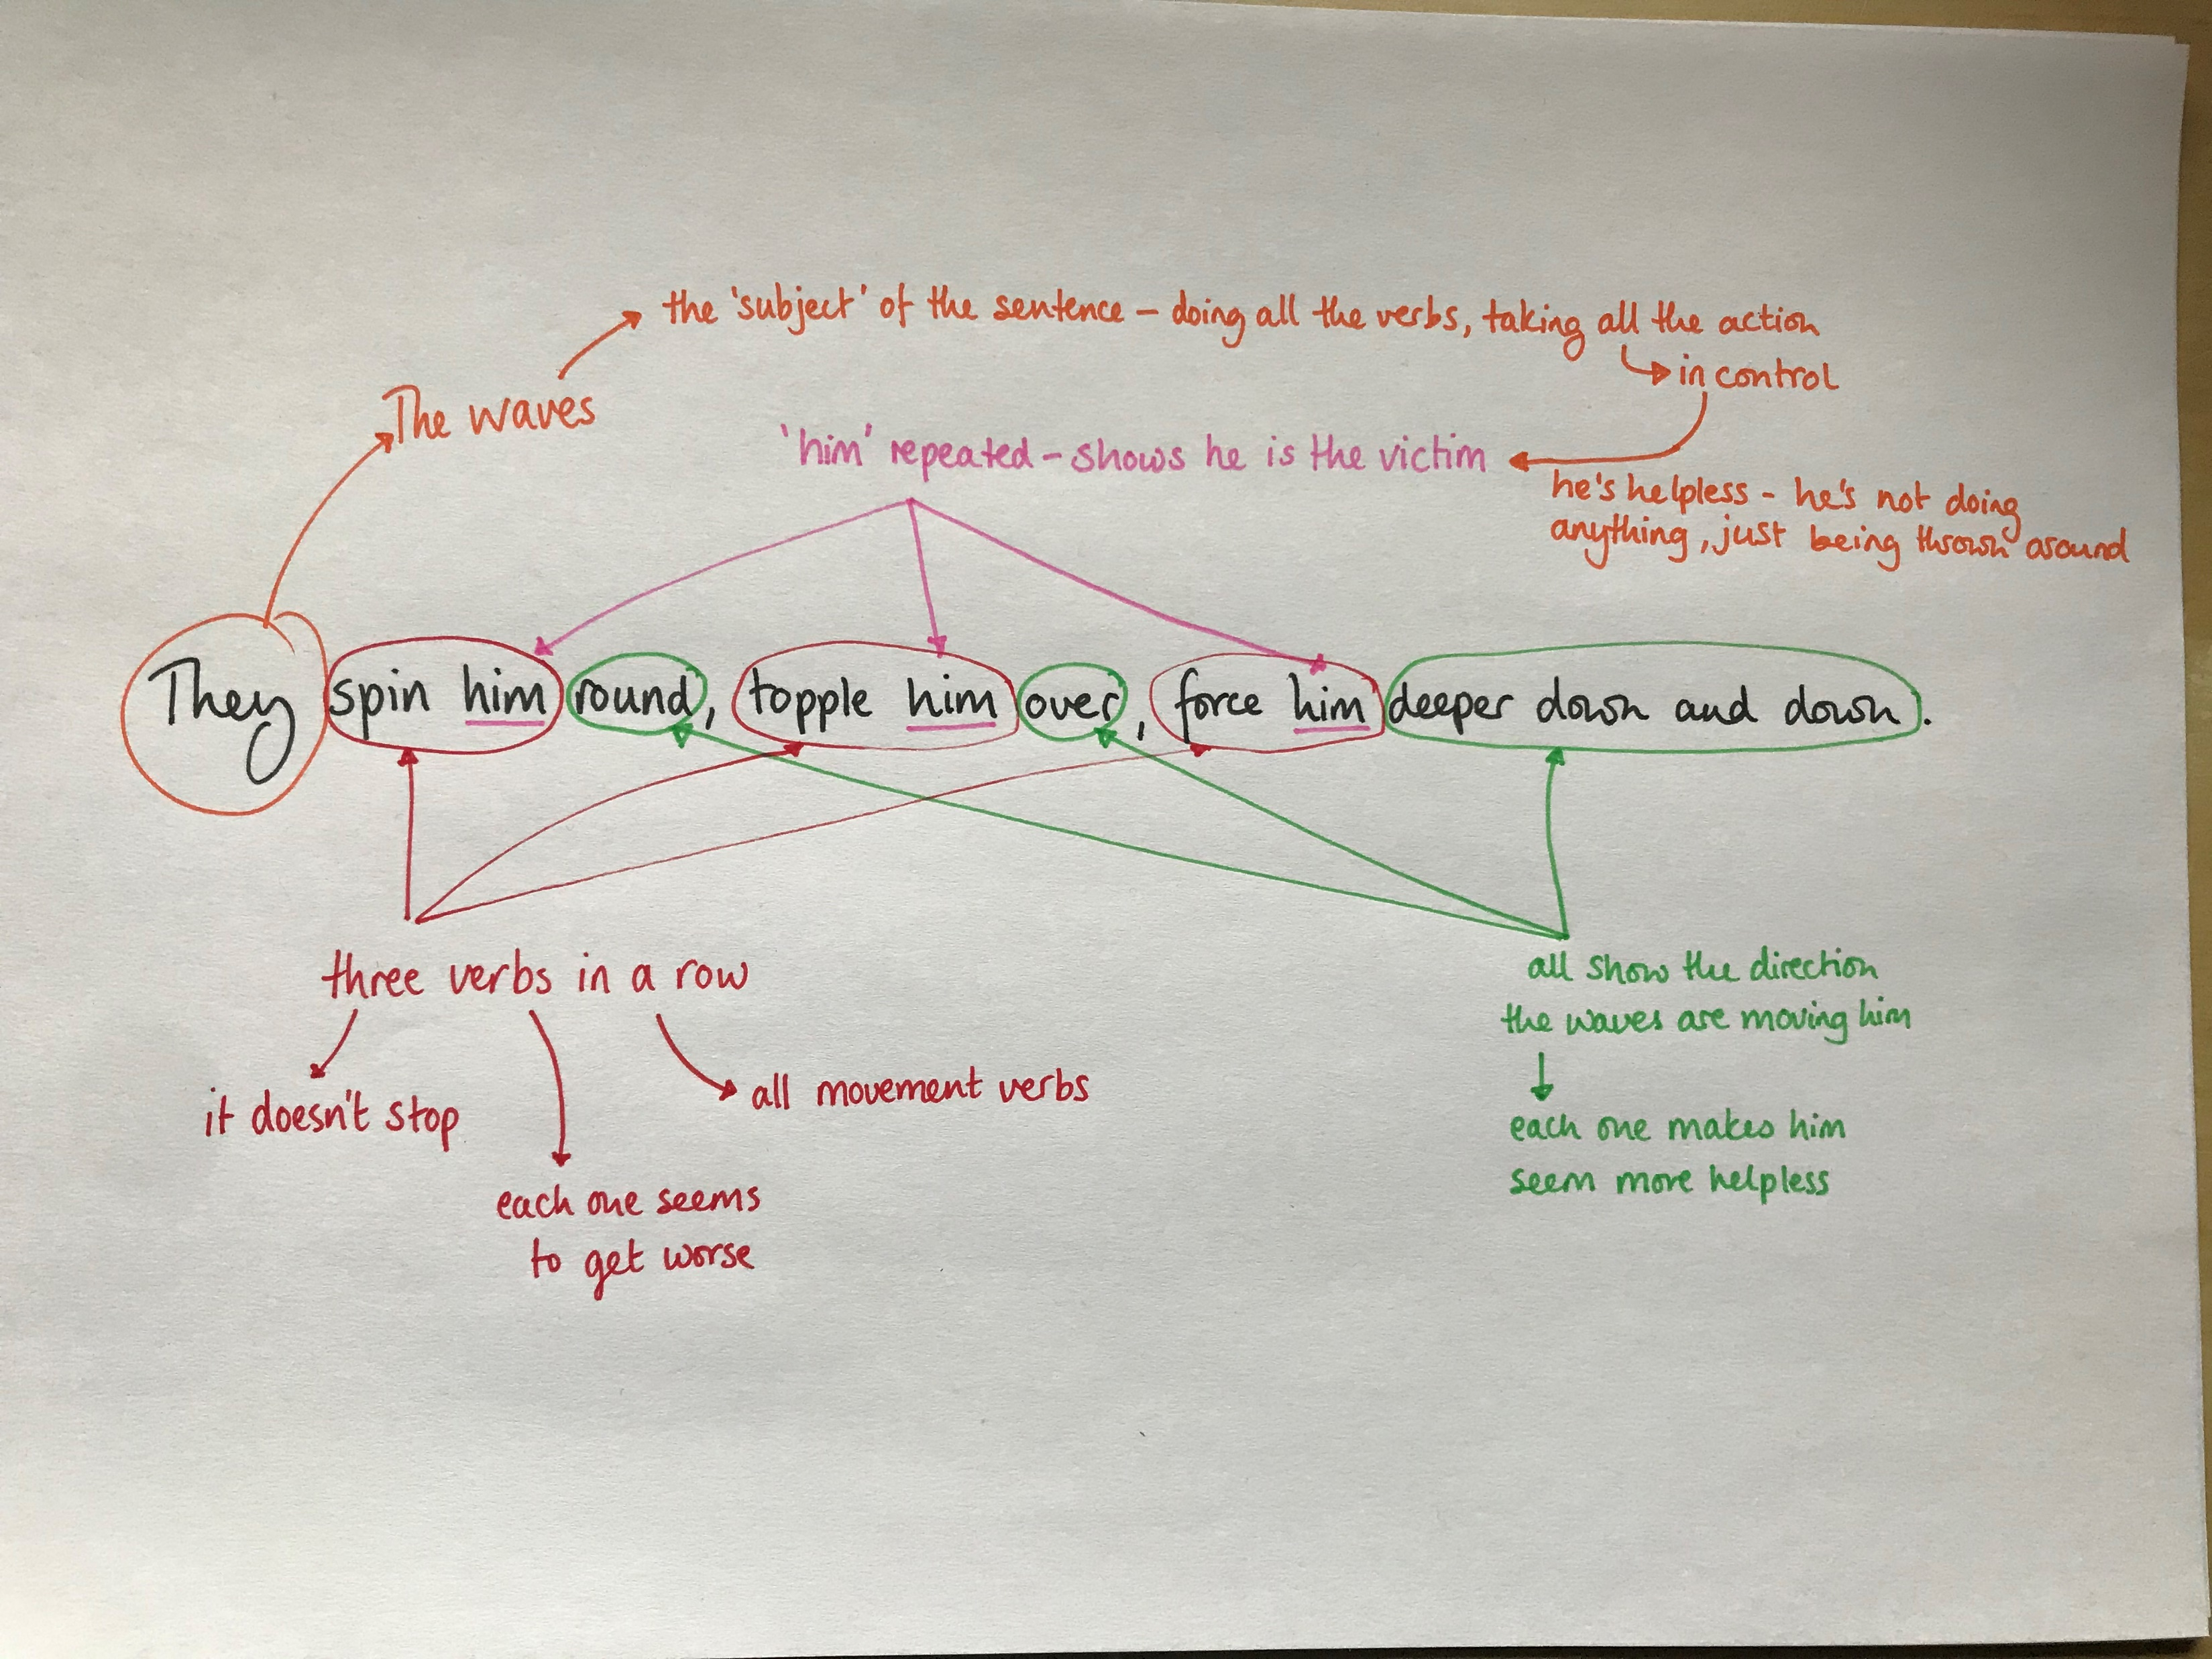 the 'subject' of the sentence – doing all the verbs, taking all the action
in control
The waves
'him' repeated – shows he is the victim
he's helpless - he's not doing
anything, just being thrown around
They spin him round, topple him over, force him deeper down and down.
three verbs in a row
it doesn't stop
all movement verbs
each one seems
to get worse
all show the direction
the waves are moving him
each one makes him
seem more helpless